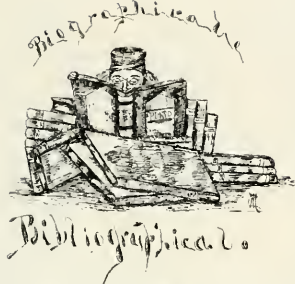 Biographical
Bibliographical.